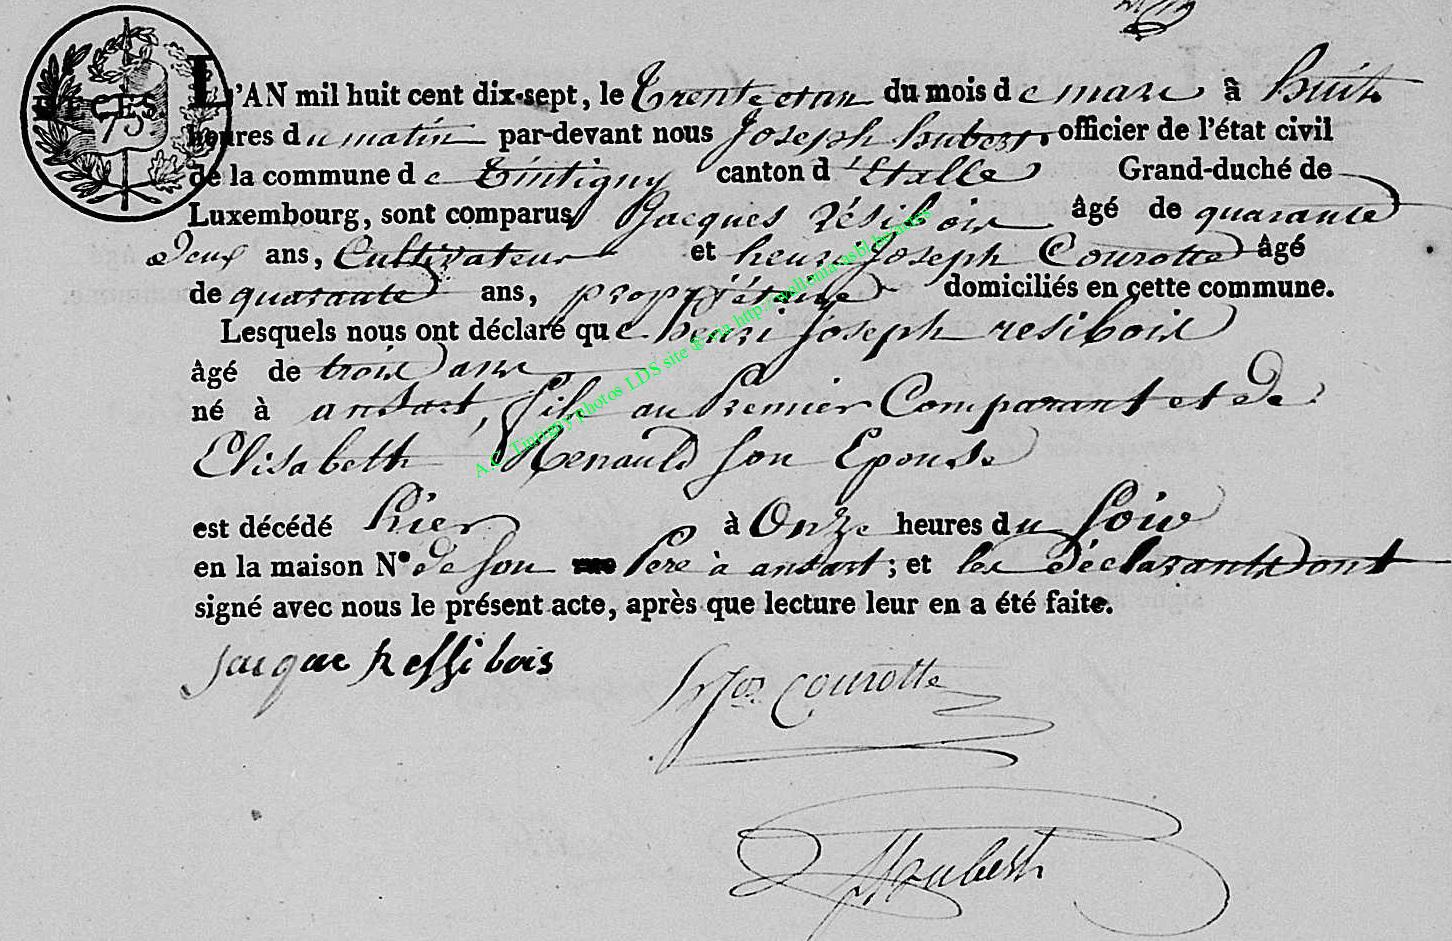 L'AN mil huit cent dix-sept, le trente et un du mois de mars à huit
heures du matin par-devant nous Joseph hubert officier de l'état civil
de la commune de tintigny canton d'Etalle Grand-duché de
Luxembourg, sont comparus Jacques résibois âgé de quarante
deux ans, Cultivateur et henri joseph Courotte âgé
de quarante ans, propriétaire domiciliés en cette commune.
Lesquels nous ont déclaré que henri joseph resibois
âgé de trois ans
né à ansart, fils au Premier Comparant et de
Elisabeth Renauld son Epouse
est décédé hier à Onze heures du soir
en la maison N° de son rue Pere à ansart; et les déclarants ont
signé avec nous le présent acte, après que lecture leur en a été faite.
jacque Ressibois
courotte
Houbert
75
A.C. Tintigny photos LDS site via http://wallonia-asbl.be/actes